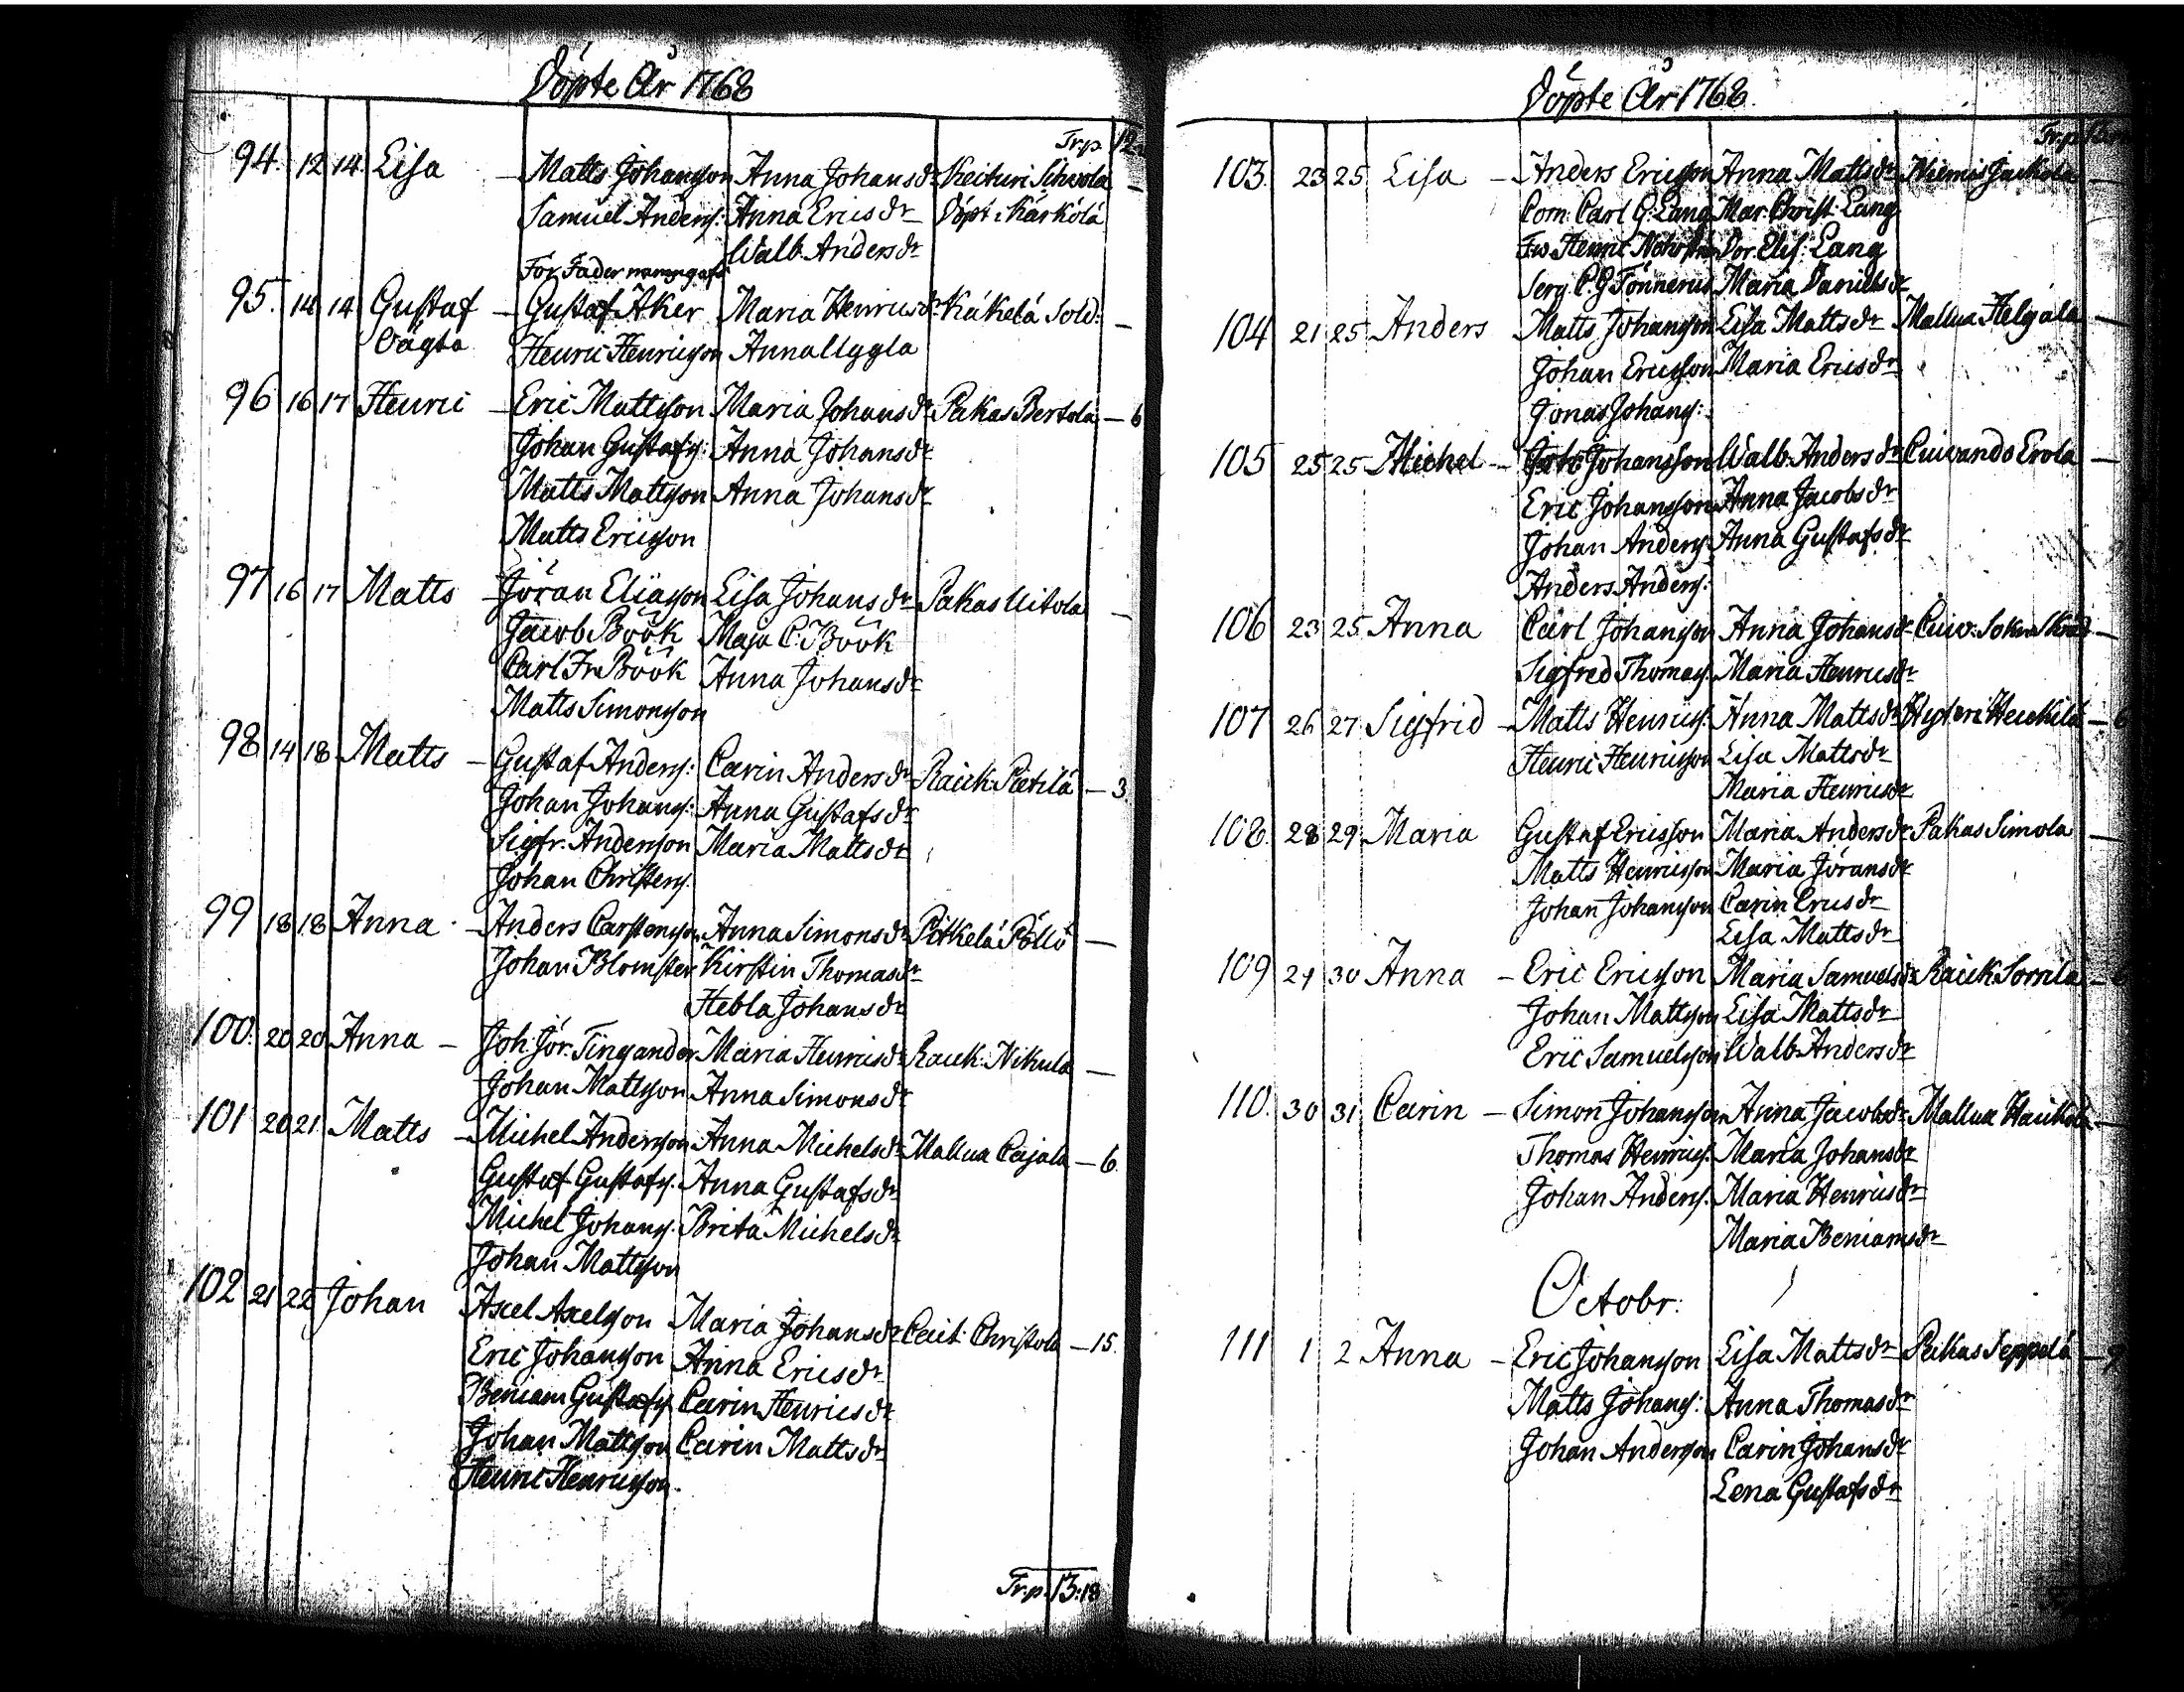 Döpte År 1768
Trp. 12
94. 12 14. Lisa – Matts Johansson Anna Johansdr Keituri Sihvola –
Samuel Anders: Anna Ericsdr Döpt i Kärkölä
Walb. Andersdr
För Fader
95. 14 14 Gustaf – Gustaf Åker Maria Henricsdr Käkelä Sold: –
Oägta Henric Henricsson Anna Uggla
96 16 17 Henric – Eric Mattsson Maria Johansdr Pakas Bertola – 6
Johan Gustafs: Anna Johansdr
Matts Mattsson Anna Johansdr
Matts Ericsson
97 16 17 Matts – Jöran Eliasson Lisa Johansdr Pakas Uitola –
Jacob Böök Maja C. Böök
Carl Fr Böök Anna Johansdr
Matts Simonsson
98 14 18 Matts – Gustaf Anders: Carin Andersdr Rauk: Pietilä – 3.
Johan Johans: Anna Gustafsdr
Sigfr. Andersson Maria Mattsdr
Johan Christers.
99 18 18 Anna – Anders Carstensson Anna Simonsdr Pitkelä Pöllö –
Johan Blomster Kirstin Thomasdr
Hebla Johansdr
100. 20 20 Anna – Joh. Jör. Tingander Maria Henricsdr Rauk: Nikula –
Johan Mattsson Anna Simonsdr
101 20 21 Matts – Michel Andersson Anna Michelsdr Mallua Cajala – 6.
Gustaf Gustafs. Anna Gustafsdr
Michel Johans. Brita Michelsdr
Johan Mattsson
102 21 22 Johan Axel Axelsson Maria Johansdr Ceit: Christola – 15.
Eric Johansson Anna Ericsdr
Beniam Gustafs Carin Henricsdr
Johan Mattsson Carin Mattsdr
Henric Henricsson.
Trp. 13:18
Döpte År 1768.
Trp.
103. 23 25 Lisa – Anders Ericsson Anna Mattsdr Niemis Jackola –
Corn. Carl G. Lang Mar. Christ. Lang
Henric Dor. Elis. Lang
Serg. C. G Tönnerus Maria Danielsdr
104 21 25 Anders Matts Johansson Lisa Mattsdr Mallua Helgala –
Johan Ericsson Maria Ericsdr
Jonas Johans:
105 25 25 Michel – Joh: Johansson Walb. Andersdr Cuivando Erola –
Eric Johansson Anna Jacobsdr
Johan Anders Anna Gustafsdr
Anders Anders:
106 23 25. Anna Carl Johansson Anna Johansdr Cuiv: Sokn Skräd –
Sigfred Thomas. Maria Henricsdr
107 26 27 Sigfrid – Matts Henrics. Anna Mattsdr Hyteri Heickilä – 6
Henric Henricsson Lisa Mattsdr
Maria Henricsdr
108. 28 29 Maria Gustaf Ericsson Maria Andersdr Pakas Simola –
Matts Henricsson Maria Jöransdr
Johan Johansson Carin Ericsdr
Lisa Mattsdr
109 29 30 Anna – Eric Ericsson Maria Samuelsdr Rauk: Sorrila –
Johan Mattsson Lisa Mattsdr
Eric Samuelsson Walb. Andersdr
110. 30 31. Carin – Simon Johansson Anna Jacobsdr Mallua Hauckola –
Thomas Henrics. Maria Johansdr
Johan Anders. Maria Henricsdr
Maria Beniamsdr
Octobr:
111 1 2 Anna – Eric Johansson Lisa Mattsdr Pakas Seppelä – 9
Matts Johans: Anna Thomasdr
Johan Andersson Carin Johansdr
Lena Gustafsdr